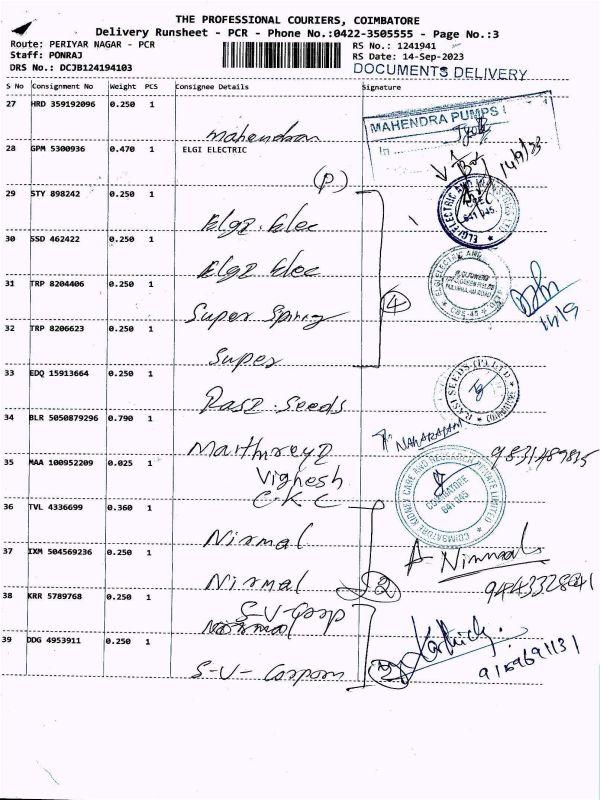 THE PROFESSIONAL COURIERS, COIMBATORE
Delivery Runsheet - PCR - Phone No.:0422-3505555 - Page No.:3
Route: PERIYAR NAGAR - PCR
RS No.: 1241941
Staff: PONRAJ
RS Date: 14-Sep-2023
DRS No.: DCJB124194103
DOCUMENTS DELIVERY
S No Consignment No Weight PCS Consignee Details Signature
27 HRD 359192096 0.250 1
Mahendran
MAHENDRA PUMPS
28 GPM 5300936 0.470 1 ELGI ELECTRIC
(P)
14/9/23
29 STY 898242 0.250 1
Elgi. Elec
ELGI ELECTRIC AND
641 045.
30 SSD 462422 0.250 1
Elgi Elec
ELGI ELECTRIC AND
CBE-45
31 TRP 8204406 0.250 1
Super Spring
4
14/9
32 TRP 8206623 0.250 1
Super
33 EDQ 15913664 0.250 1
Rasi. Seeds
RASI SEEDS (P) LTD
34 BLR 5050879296 0.790 1
Maithreyi
35 MAA 100952209 0.025 1
Vighesh
C.K.C
COIMBATORE KIDNEY CARE AND RESEARCH PRIVATE LIMITED
COIMBATORE
641 045
36 TVL 4336699 0.360 1
Nirmal
37 IXM 504569236 0.250 1
Nirmal
2
Nirmal
38 KRR 5789768 0.250 1
S-V-Corp
39 DDG 4953911 0.250 1
S-V-Corporn
2
Karthick
9159691131